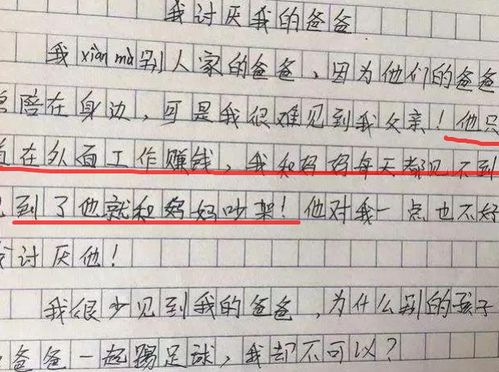 我讨厌我的爸爸
我xiàn mù别人家的爸爸，因为他们的爸爸
陪在身边，可是我很难见到我父亲！他只
在外面工作赚钱，我和妈妈每天都见不到
到了他就和妈妈吵架！他对我一点也不好
讨厌他！
我很少见到我的爸爸，为什么别的孩子
爸爸一起踢足球，我却不可以？